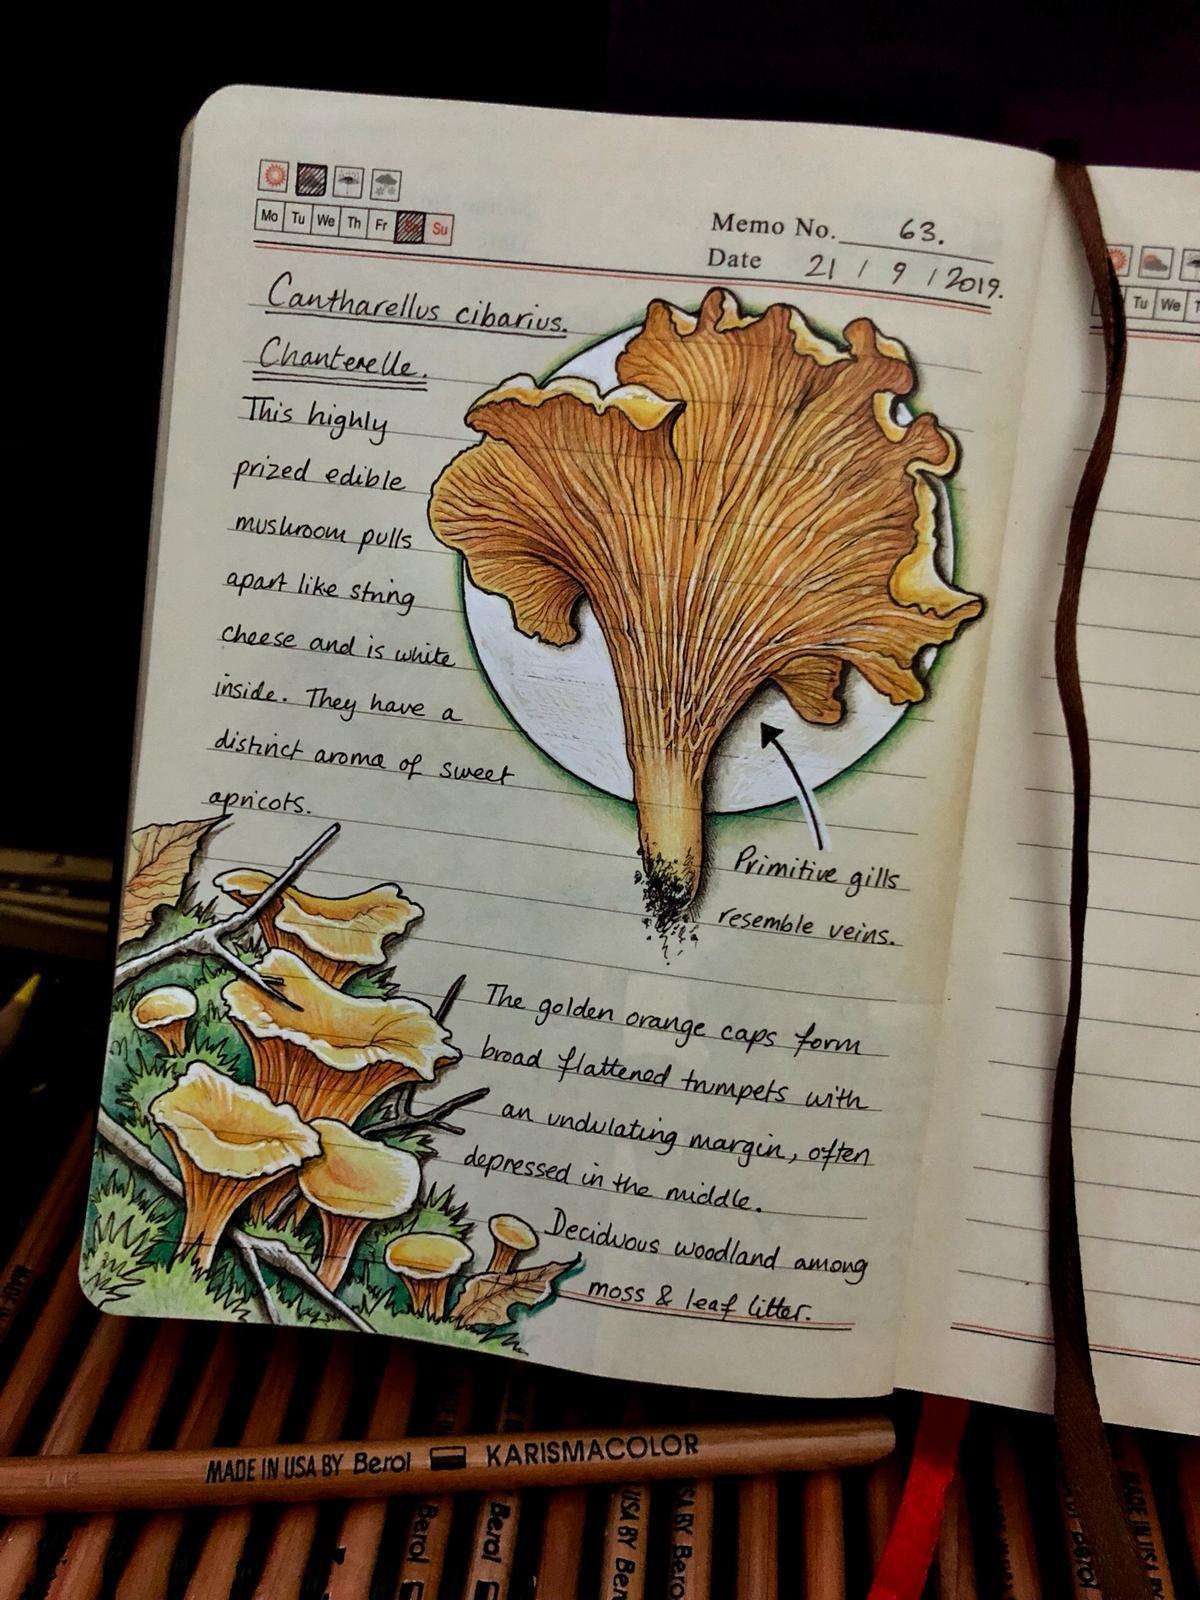 Mo Tu We Th Fr Su
Memo No. 63.
Date 21 / 9 / 2019.
Cantharellus cibarius.
Chanterelle.
This highly
prized edible
mushroom pulls
apart like string
cheese and is white
inside. They have a
distinct aroma of sweet
apricots.
Primitive gills
resemble veins.
The golden orange caps form
broad flattened trumpets with
an undulating margin, often
depressed in the middle.
Deciduous woodland among
moss & leaf litter.
Tu We
MADE IN USA BY Berol KARISMACOLOR
Berol
Berol
USA BY Ber
USA BY Berol
Berol